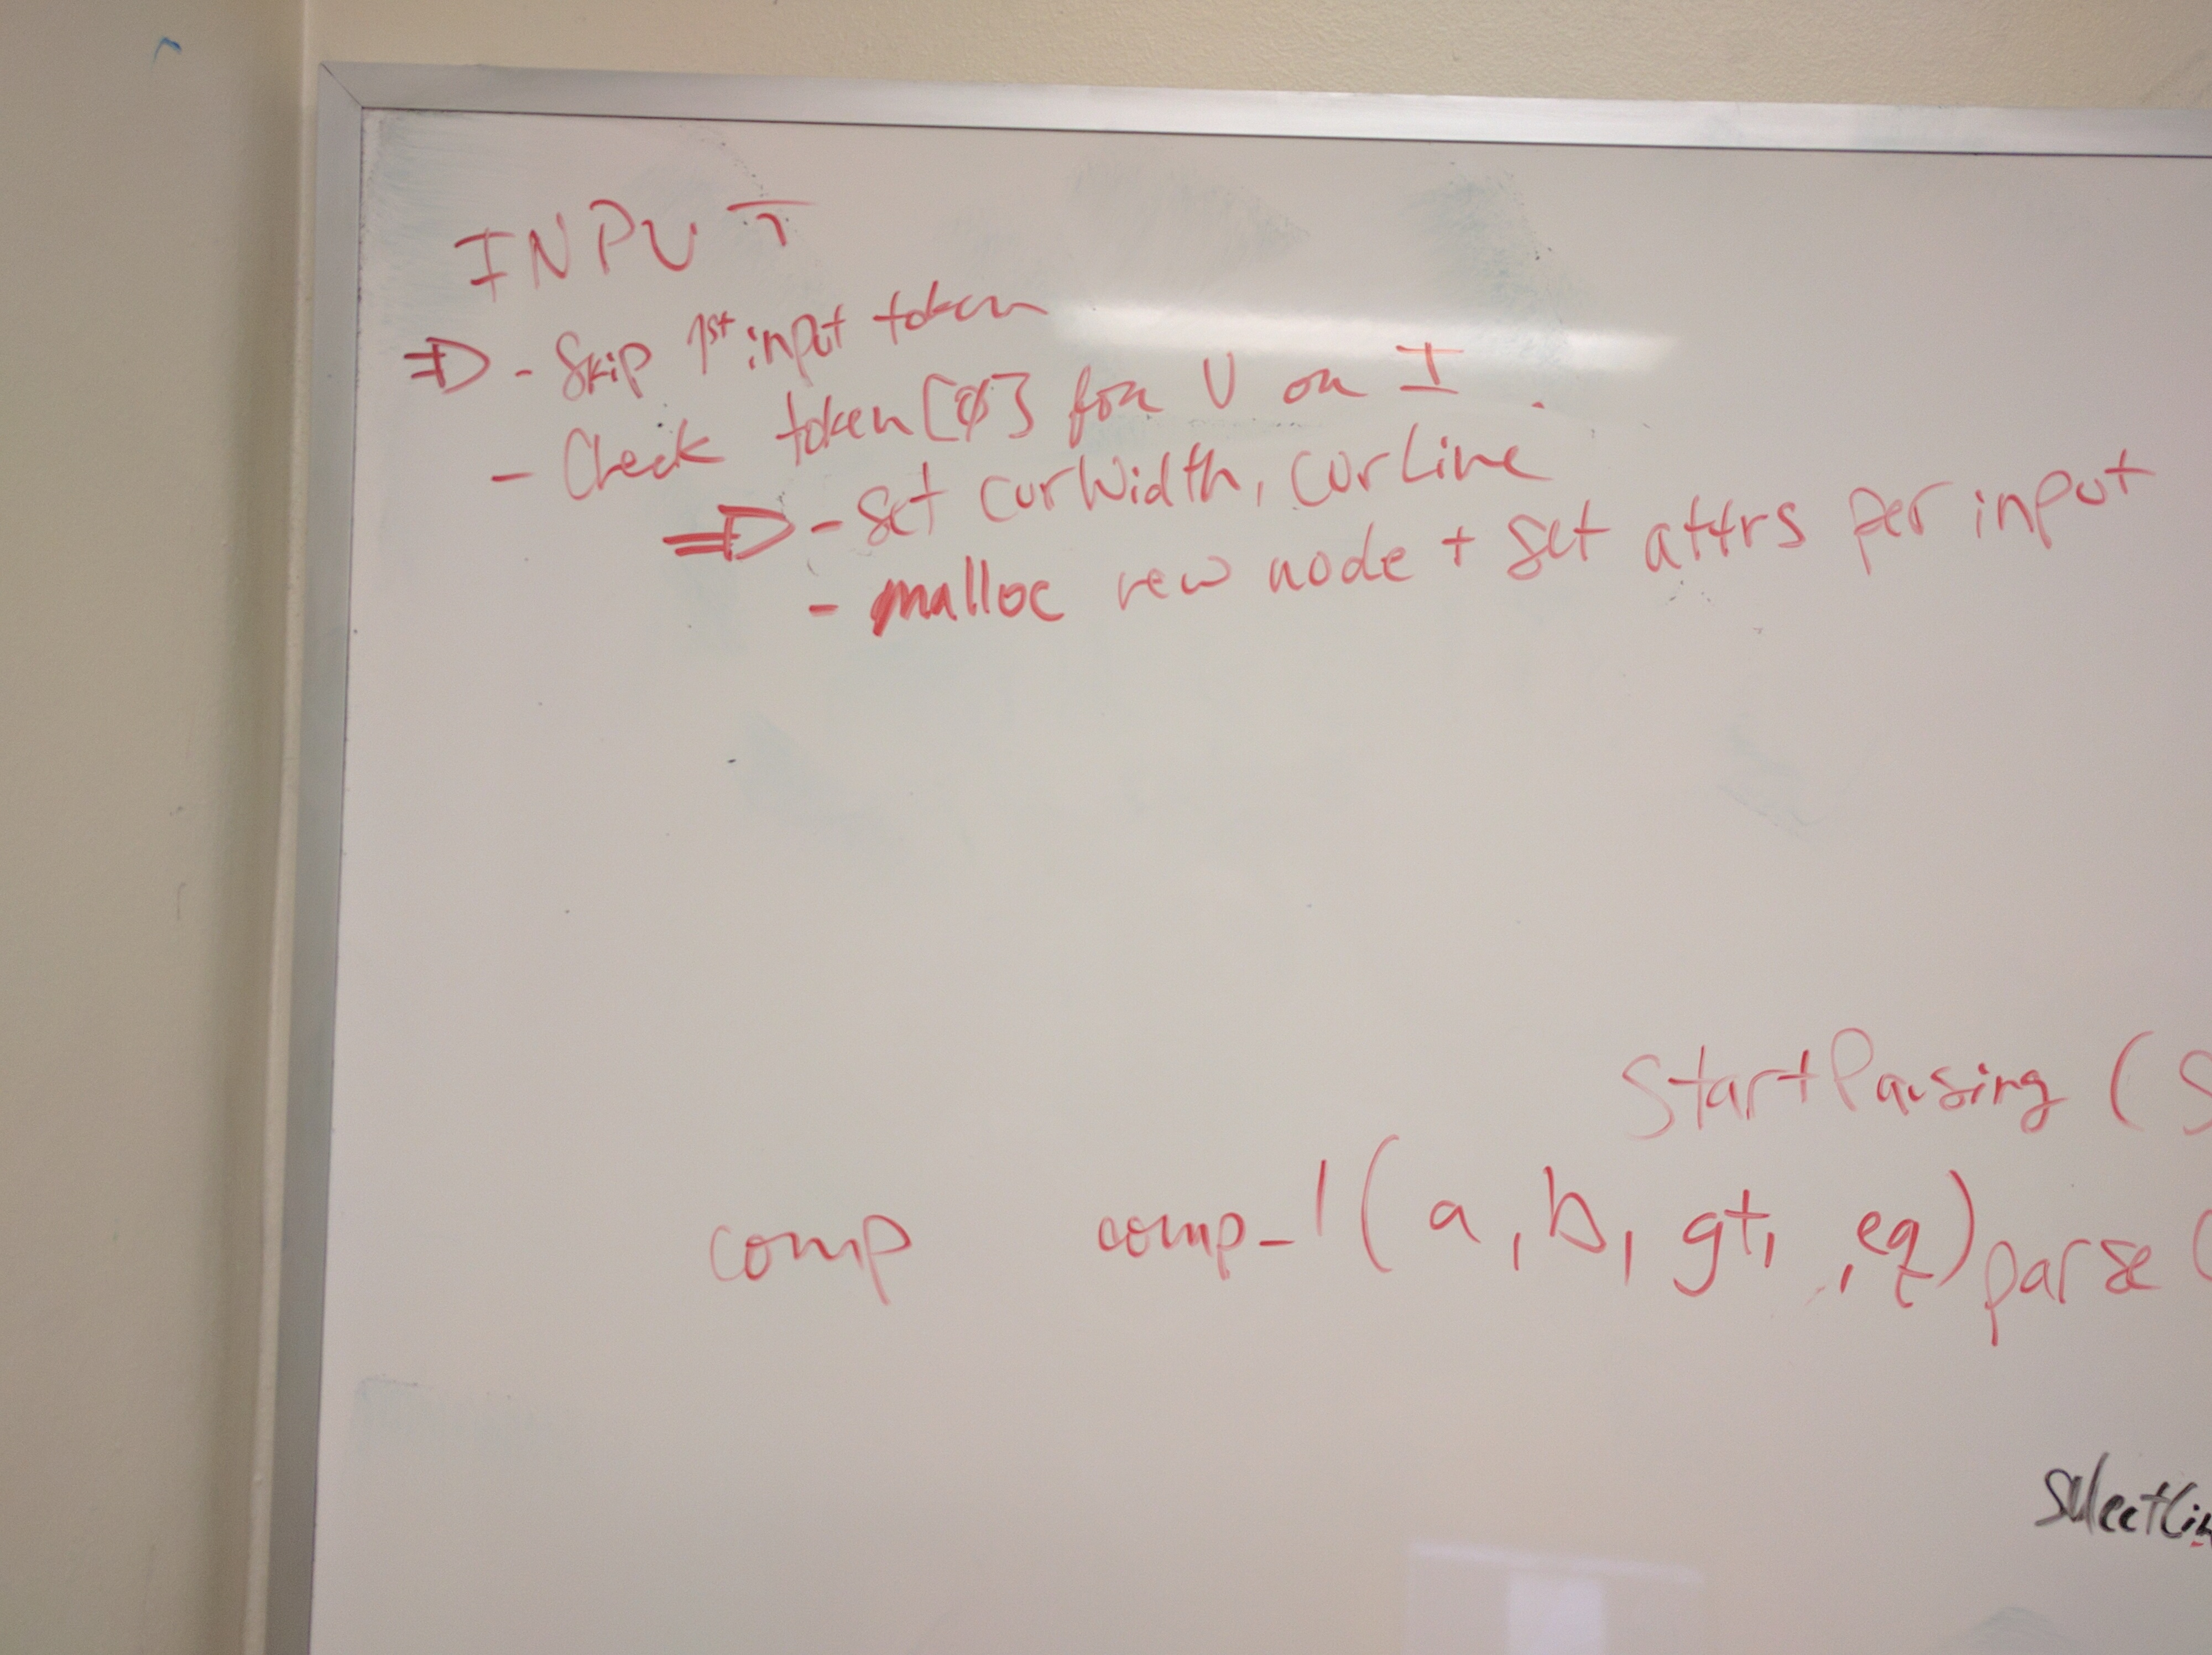 INPUT
⇒ - Skip 1st input token
- Check token[Ø] for U or I.
⇒ - set curWidth, curLine
- malloc new node + set attrs per input
StartParsing (S
comp comp_1(a, b, gt, , eq)
parse (
selectLin